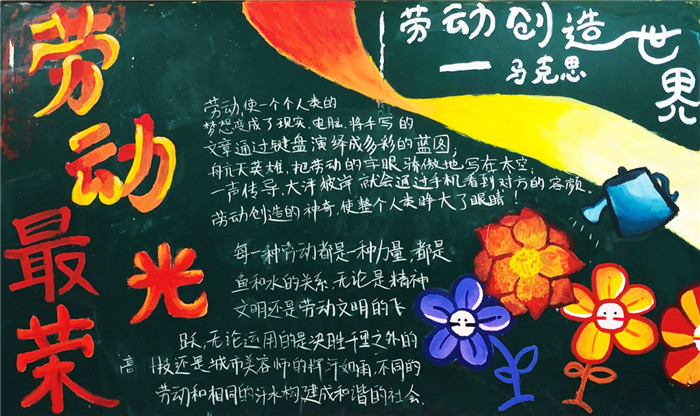 劳动最荣
光
劳动创造世界
—马克思
劳动,使一个个人类的
梦想变成了现实,电脑,将手写的
文章通过键盘演绎成多彩的蓝图;
航天英雄,把劳动的字眼骄傲地写在太空;
一声传导,大洋彼岸就会通过手机看到对方的容颜。
劳动创造的神奇,使整个人类睁大了眼睛!
每一种劳动都是一种力量,都是
鱼和水的关系,无论是精神
文明还是劳动文明的飞
跃,无论运用的是决胜千里之外的
高技还是城市美容师的挥汗如雨,不同的
劳动和相同的汗水,构建成和谐的社会.